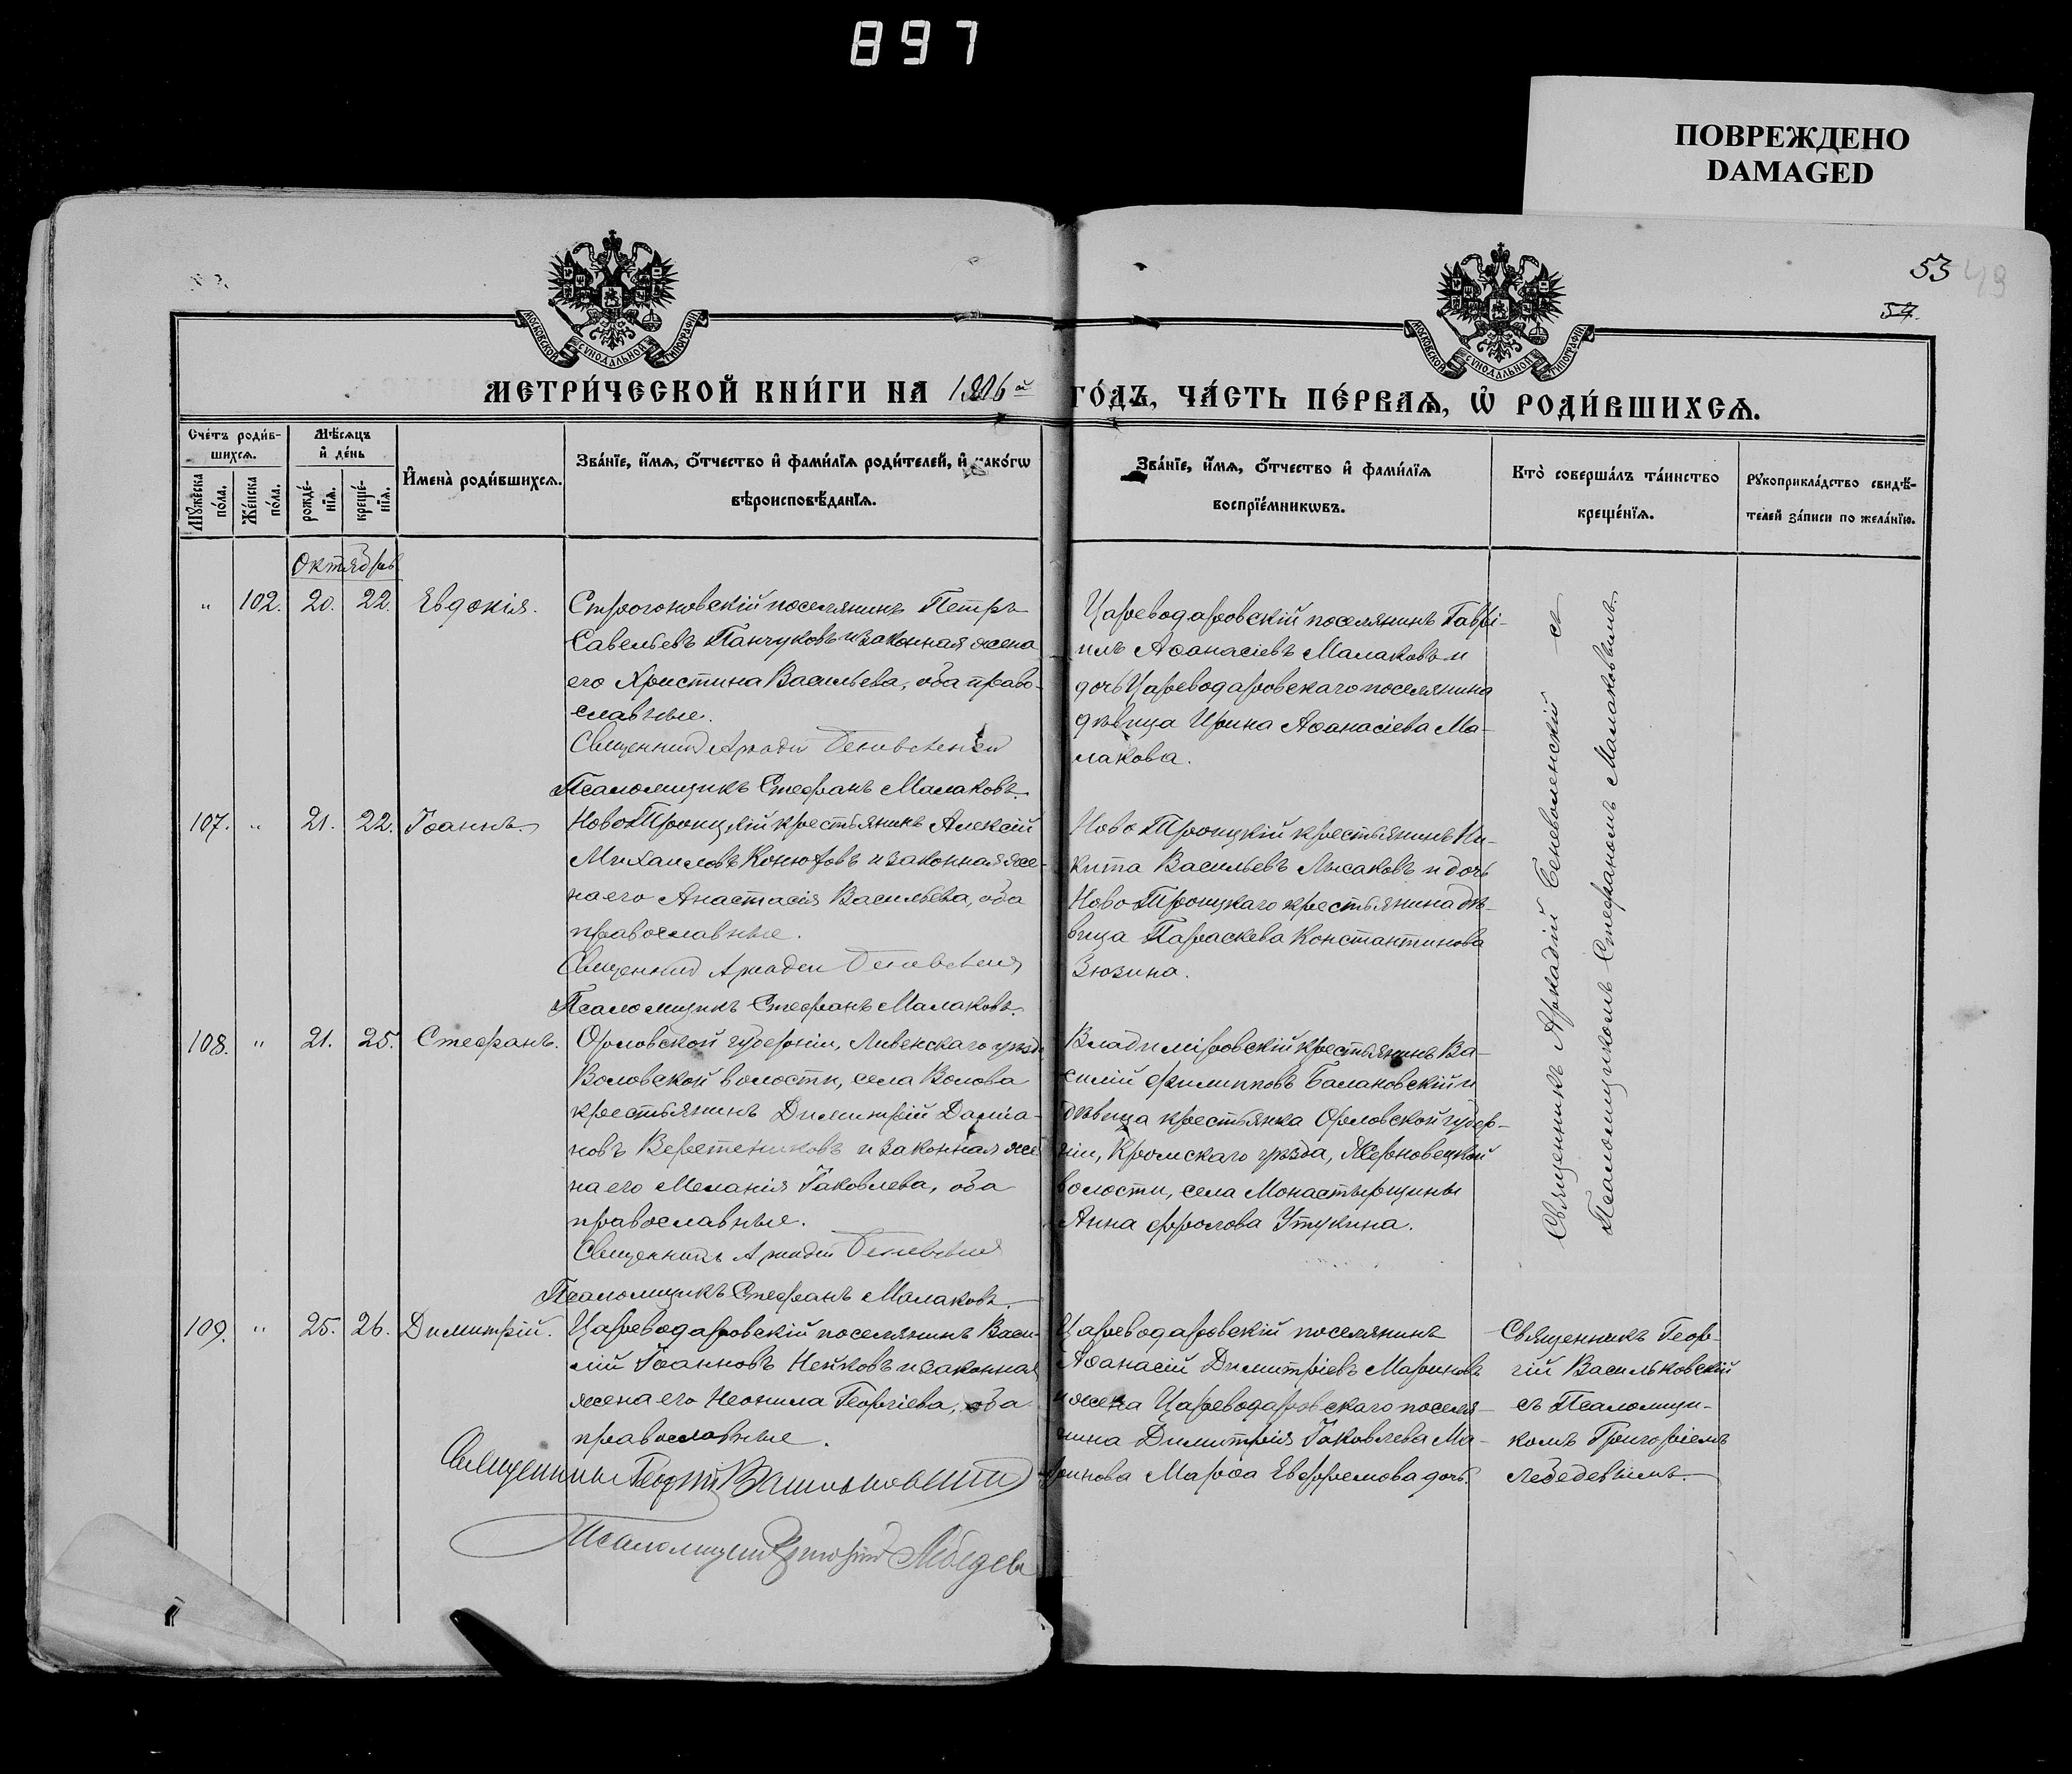 897
ПОВРЕЖДЕНО
DAMAGED
53 49
57.
МОСКОВСКОЙ СѴНОДАЛЬНОЙ ТИПОГРАФІИ
МОСКОВСКОЙ СѴНОДАЛЬНОЙ ТИПОГРАФІИ
МЕТРИ́ЧЕСКОЙ КНИ́ГИ НА 1896й ГО́ДЪ, ЧА́СТЬ ПЕ́РВАѦ, Ѡ҆ РОДИ́ВШИХСѦ.
Сче́тъ роди́в-
шихсѧ.
Мꙋ́жеска по́ла.
Же́нска по́ла.
Мѣ́сѧцъ
и҆ де́нь
рожде́-
нїѧ.
креще́-
нїѧ.
И҆мена̀ роди́вшихсѧ.
Зва́нїе, и҆́мѧ, ѻ҆́тчество и҆ фами́лїѧ роди́телей, и҆ како́гѡ
вѣроисповѣ́данїѧ.
Зва́нїе, и҆́мѧ, ѻ҆́тчество и҆ фами́лїѧ
воспрїе́мникѡвъ.
Кто̀ соверша́лъ та́инство
креще́нїѧ.
Рꙋкоприкла́дство свидѣ́-
телей за́писи по жела́нїю.
Октябрь
" 102. 20. 22. Евдокія.
Строгоновскій поселянинъ Петръ
Савельевъ Панчуковъ и законная жена
его Христина Васильева, оба право-
славные.
Священникъ Аркадій
Псаломщикъ Стефанъ Малаковъ.
Цареводаровскій поселянинъ Гаврі-
илъ Аѳанасіевъ Малаковъ и
дочь Цареводаровскаго поселянина
дѣвица Ирина Аѳанасіева Ма-
лакова.
107. " 21. 22. Іоаннъ.
НовоТроицкій крестьянинъ Алексій
Михаиловъ Конюховъ и законная же-
на его Анастасія Васильева, оба
православные.
Священникъ Аркадій
Псаломщикъ Стефанъ Малаковъ.
НовоТроицкій крестьянинъ Ни-
кита Васильевъ Лысаковъ и дочь
НовоТроицкаго крестьянина дѣ-
вица Параскева Константинова
Зюзина.
108. " 21. 25. Стефанъ.
Орловской губерніи, Ливенскаго уѣзда
Воловской волости, села Волова
крестьянинъ Димитрій Даміа-
новъ Веретениковъ и законная же-
на его Меланія Іаковлева, оба
православные.
Священникъ Аркадій
Псаломщикъ Стефанъ Малаковъ.
Владиміровскій крестьянинъ Ва-
силій Филипповъ Балановскій и
дѣвица крестьянка Орловской губер-
ніи, Кромскаго уѣзда, Жерновецкой
волости, села Монастырщины
Анна Фролова Утукина.
Священникъ Аркадій Беневоленскій съ
Псаломщикомъ Стефаномъ Малаковымъ.
109. " 25. 26. Димитрій.
Цареводаровскій поселянинъ Васи-
лій Іоанновъ Нейковъ и законная
жена его Неонила Георгіева, оба
православные.
Священникъ Георгій Васильковскій
Псаломщикъ Григорій Лебедевъ
Цареводаровскій поселянинъ
Аѳанасій Димитріевъ Мариновъ
и жена Цареводаровскаго поселя-
нина Димитрія Іаковлева Ма-
ринова Марѳа Евфремова дочь.
Священникъ Геор-
гій Васильковскій
съ Псаломщи-
комъ Григоріемъ
Лебедевымъ.